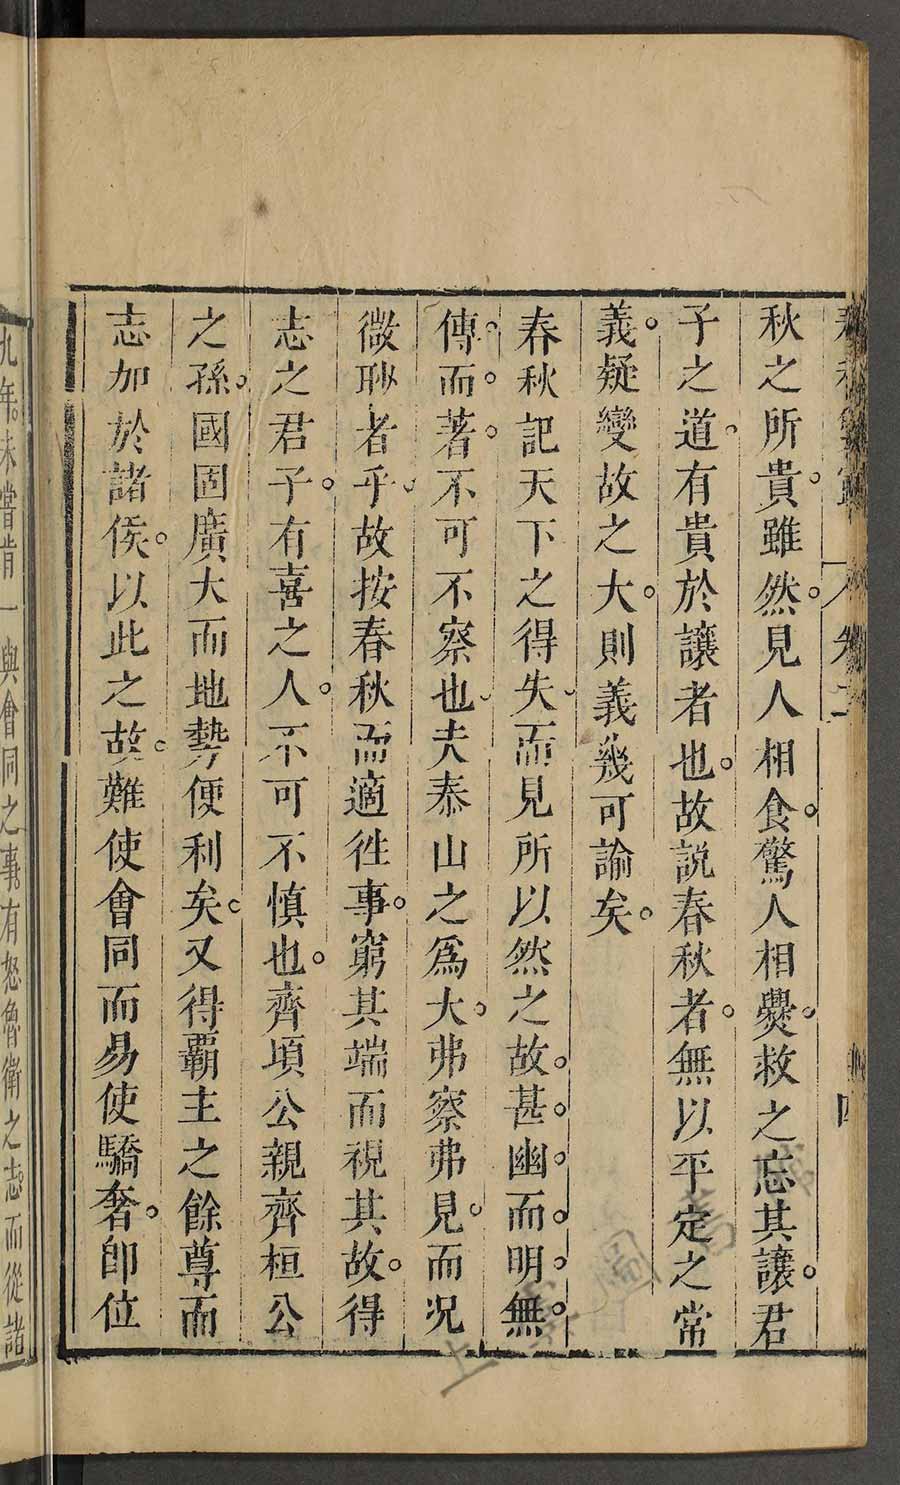 春秋繁露　卷二　四
秋之所貴。雖然。見人相食。驚人相㸑。救之忘其讓。君
子之道。有貴於讓者也。故説春秋者。無以平定之常
義。疑變故之大。則義幾可諭矣。
春秋記天下之得失、而見所以然之故。甚。幽。而。明。無。
傳。而。著。不可不察也、夫泰山之爲大。弗察弗見。而况
微眇者乎、故按春秋而適徃事。窮其端而視其故。得
志之君子。有喜之人。不可不慎也。齊頃公親齊桓公
之孫。國固廣大而地勢便利矣。又得覇主之餘尊而
志加於諸侯。以此之故。難使會同而易使驕奢。卽位
九年。未嘗肯一與會同之事。有怒魯衛之志。而從諸